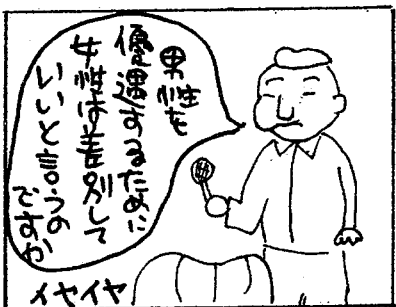 男性を
優遇するために
女性は差別して
いいと言うの
ですか
イヤイヤ